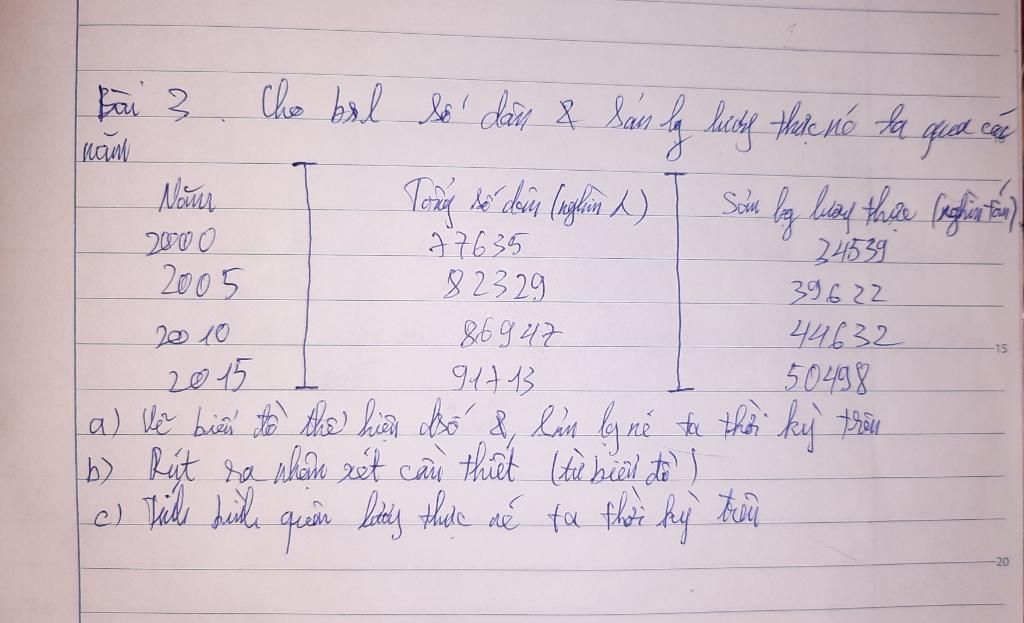 Bài 3. Cho bsl số dân & sản lg lương thực nc ta qua các
năm
Năm Tổng số dân (nghìn ) Sản lg lương thực (nghìn tấn)
2000 77635 34539
2005 82329 39622
2010 86947 44632
2015 91713 50498
a) Vẽ biểu đồ thể hiện dsố & sản lg nc ta thời kỳ trên
b) Rút ra nhận xét cần thiết (từ biểu đồ)
c) Tính bình quân lương thực nc ta thời kỳ trên
15
20